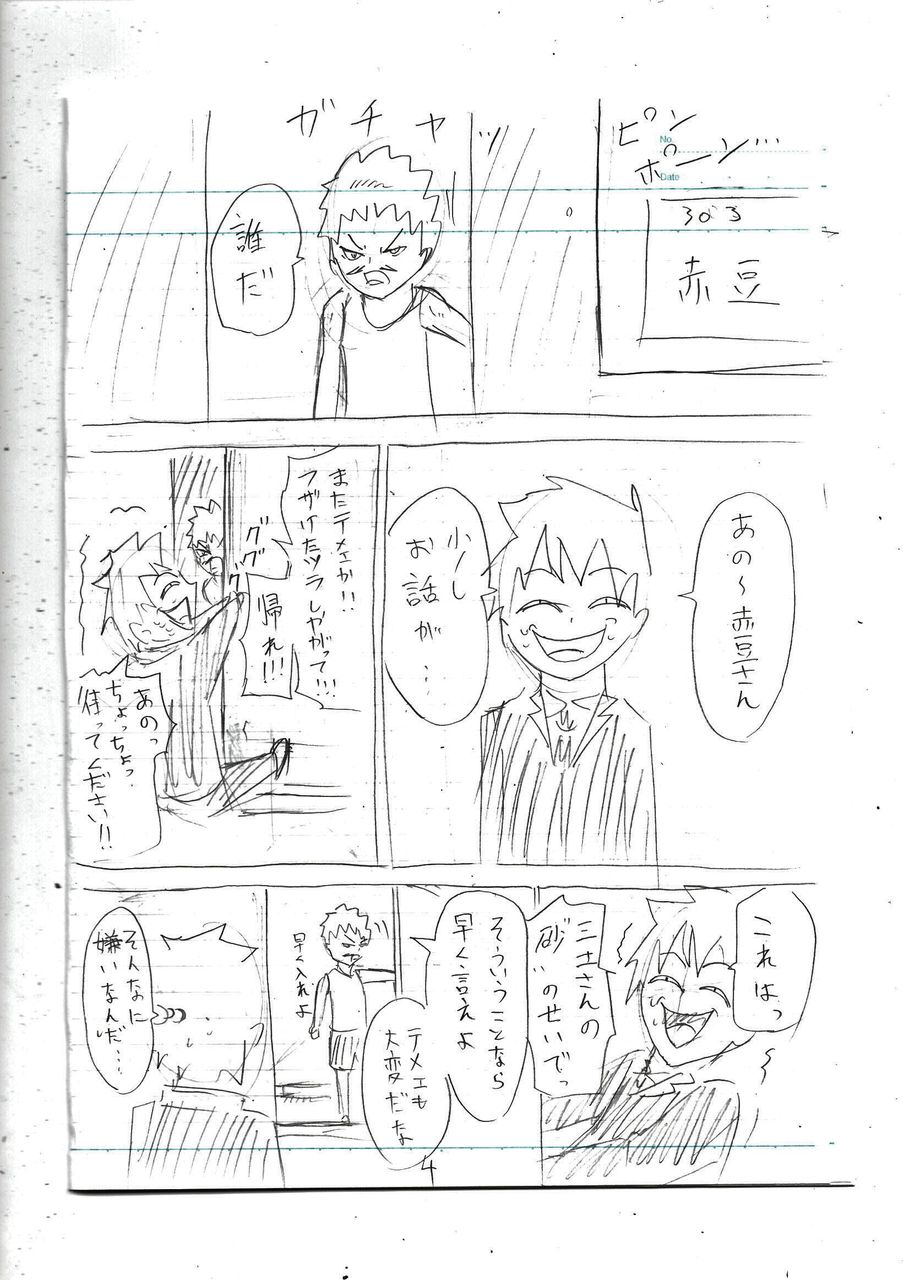 ピン
ポーン…
No.
Date
赤豆
ガチャッ
誰だ
あの〜赤豆さん
少し
お話が…
またテメェか!!
フザけたツラしやがって!!!
ググ
帰れ!!!
あのっ
ちょっちょっ
待ってください!!
これはっ
三土さんの
砂、のせいでっ
そういうことなら
早く言えよ
テメェも
大変だな
早く入れよ
そんなに
嫌いなんだ…
4